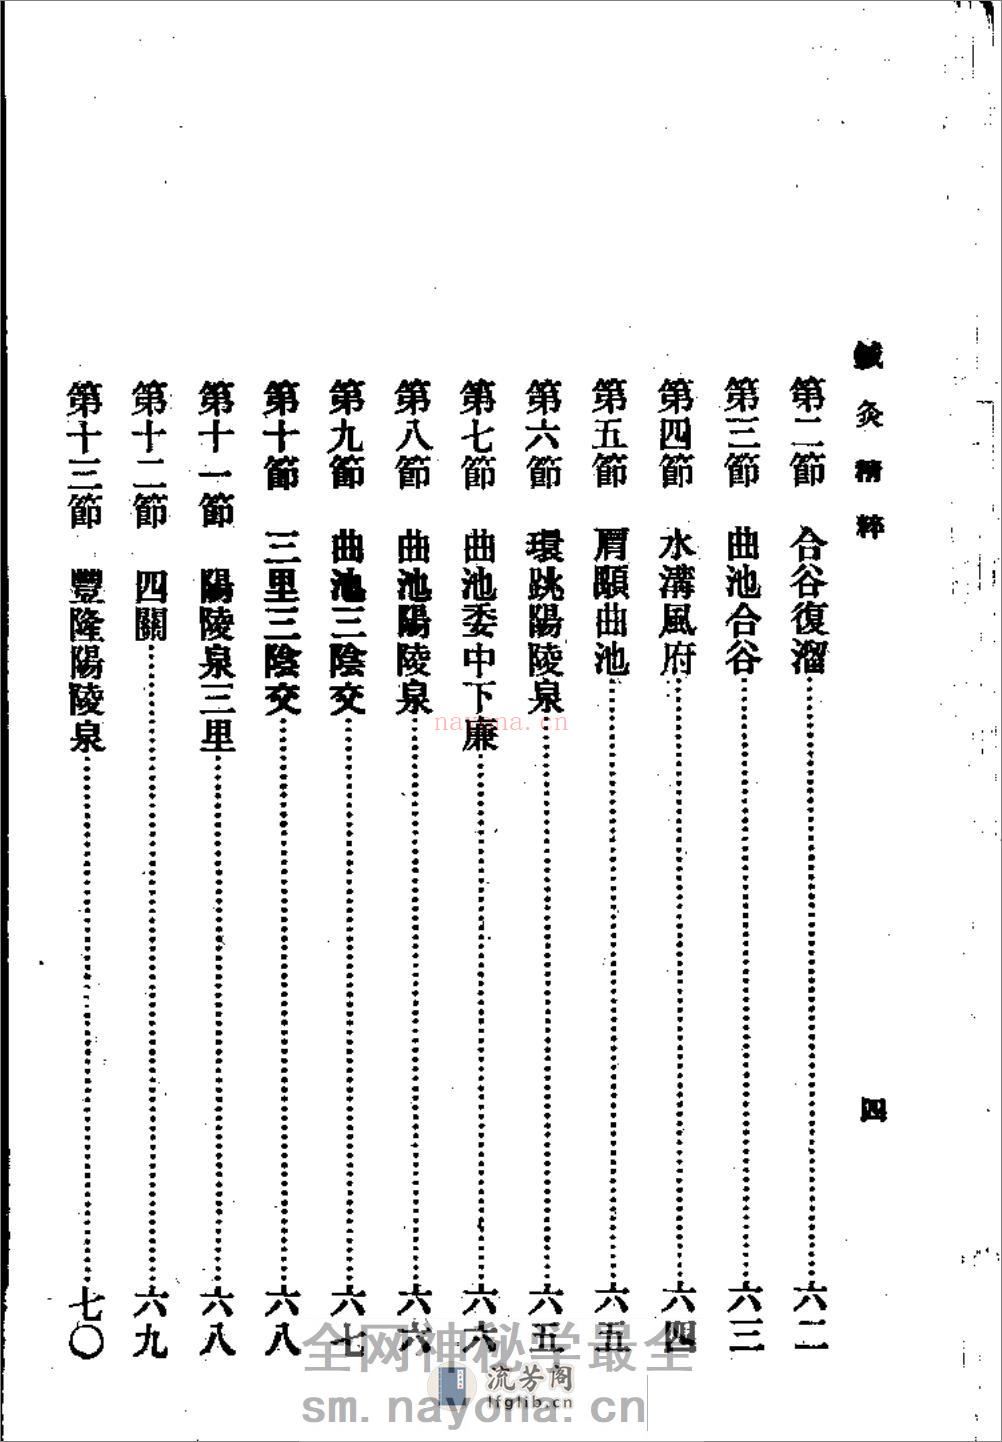 鍼灸精粹
四
第二節 合谷復溜……六二
第三節 曲池合谷……六三
第四節 水溝風府……六四
第五節 肩顒曲池……六五
第六節 環跳陽陵泉……六五
第七節 曲池委中下廉……六六
第八節 曲池陽陵泉……六六
第九節 曲池三陰交……六七
第十節 三里三陰交……六八
第十一節 陽陵泉三里……六八
第十二節 四關……六九
第十三節 豐隆陽陵泉……七〇
nayona.cn
全网神秘学最全
流芳阁
lfglib.com
sm.nayona.cn